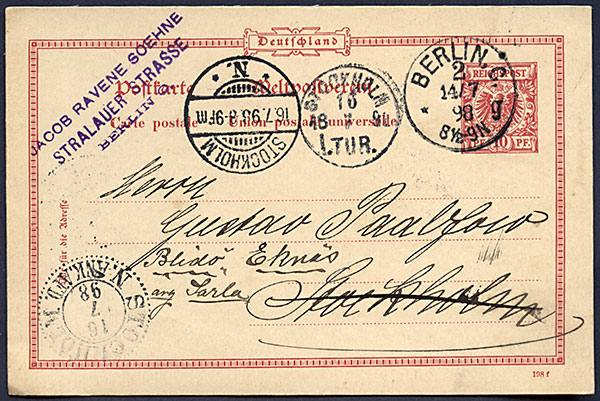 Deutschland
Postkarte Weltpostverein
Carte postale Union postale universelle
JACOB RAVENE SOEHNE
STRALAUER STRASSE
BERLIN C
N.
16.7.98.8-9Fm
STOCKHOLM
STOCKHOLM
16
18 7 9
1.TUR.
BERLIN C
2
14/7
98
8½-9N
g
REICHSPOST
10 PF
für die Adresse
Herrn
Gustav Paalzow
Blidö Eknäs
ång Tarla
Stockholm
STOCKHOLM
16
7
98
198 f